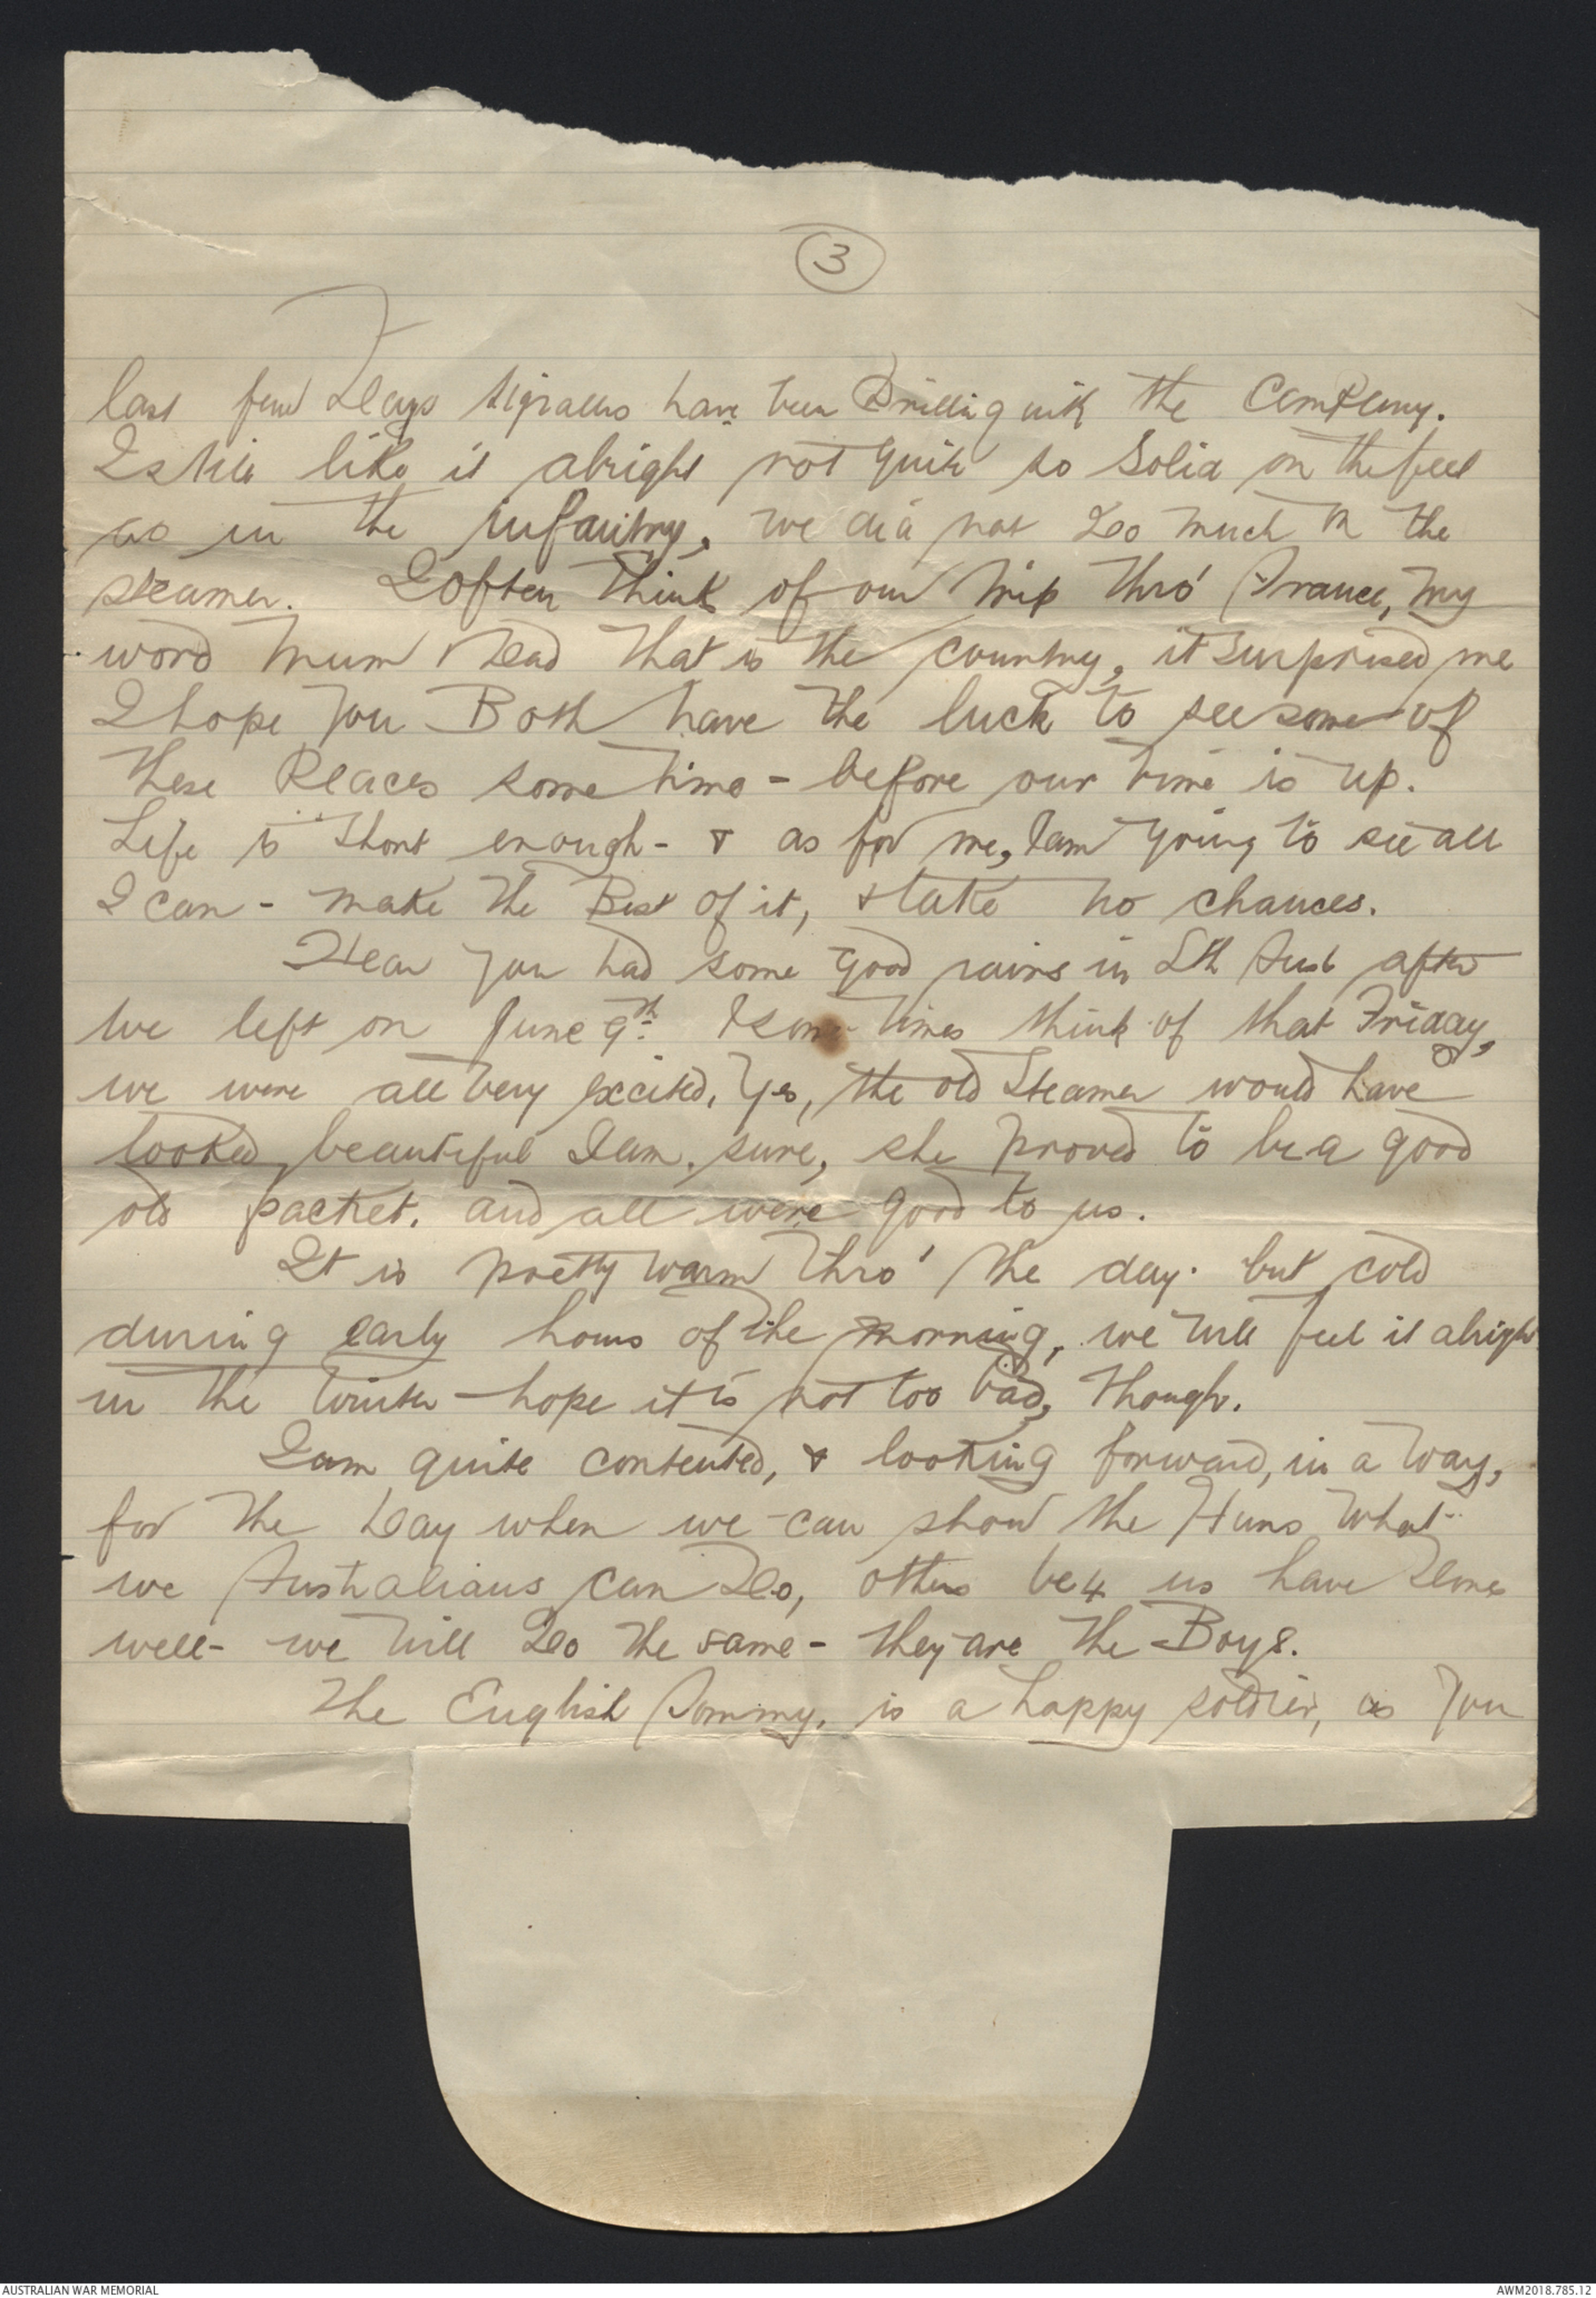 3
last few Days signallers have been Drilling with the Company.
I still like it alright not quite so Solid on the feet
as in the infantry, we did not Do much on the
steamer. I often think of our trip thro' France, my
word Mum & Dad that is the country, it surprised me
I hope you Both have the luck to see some of
these Places some time - before our time is up.
Life is short enough - & as for me, I am going to see all
I can - make the Best of it, & take no chances.
Hear you had some good rains in Sth Aust after
we left on June 9th. I sometimes think of that Friday,
we were all very excited, Yes, the old Steamer would have
looked beautiful I am sure, she proved to be a good
old packet. and all were good to us.
It is pretty warm thro' the day. but cold
during early hours of the morning, we will feel it alright
in the Winter - hope it is not too bad, though.
I am quite contented, & looking forward, in a way,
for the Day when we can show the Huns what
we Australians can Do, others be4 us have Done
well - we will Do the same - they are the Boys.
The English Tommy, is a happy soldier, as you
AUSTRALIAN WAR MEMORIAL
AWM2018.785.12